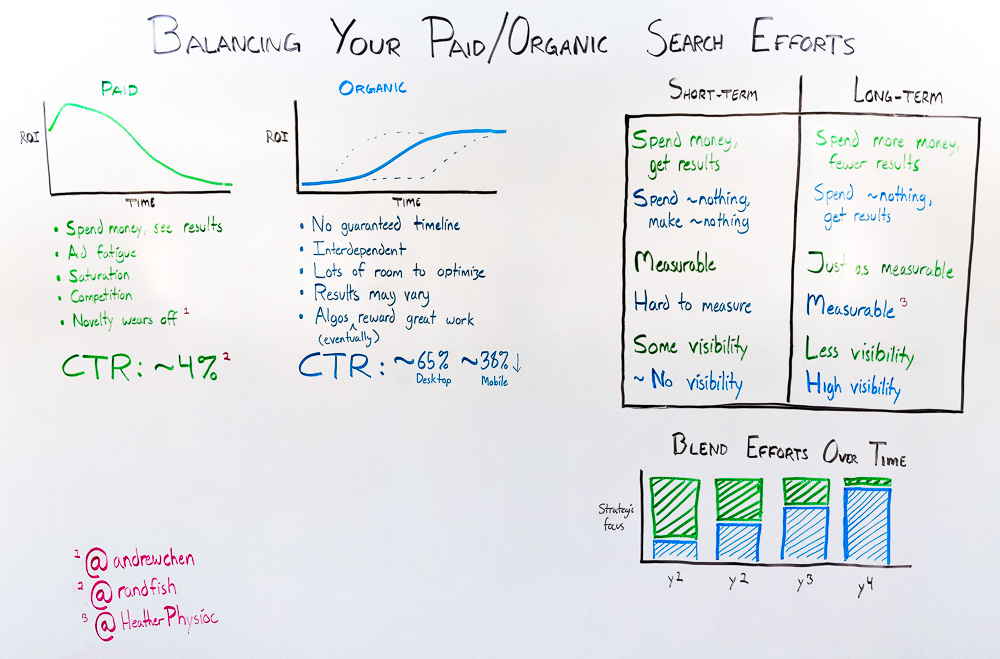 BALANCING YOUR PAID/ORGANIC SEARCH EFFORTS
PAID
ROI
TIME
• Spend money, see results
• Ad fatigue
• Saturation
• Competition
• Novelty wears off 1
CTR: ~4% 2
ORGANIC
ROI
TIME
• No guaranteed timeline
• Interdependent
• Lots of room to optimize
• Results may vary
• Algos ^ reward great work
(eventually)
CTR: ~65% ~38% ↓
Desktop Mobile
SHORT-TERM LONG-TERM
Spend money,
get results
Spend more money,
fewer results
Spend ~nothing,
make ~nothing
Spend ~nothing,
get results
Measurable
Just as measurable
Hard to measure
Measurable 3
Some visibility
Less visibility
~ No visibility
High visibility
BLEND EFFORTS OVER TIME
Strategic
focus
y1 y2 y3 y4
1 @andrewchen
2 @randfish
3 @HeatherPhysioc